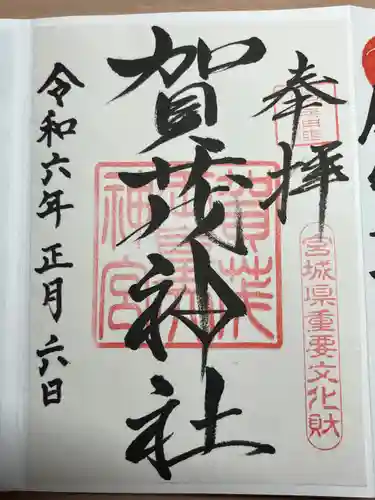 奉拝
宮城県重要文化財
賀茂神社
令和六年正月六日